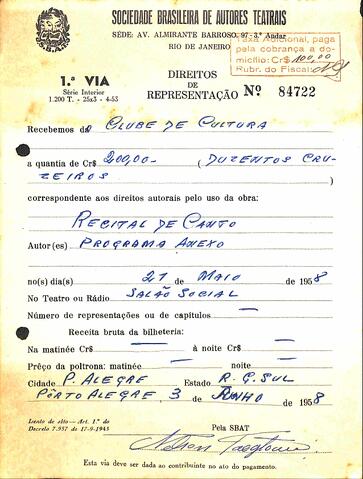 SOCIEDADE BRASILEIRA DE AUTORES TEATRAIS
SÉDE: AV. ALMIRANTE BARROSO, 97 - 3.º Andar
RIO DE JANEIRO
Taxa Adicional, paga
pela cobrança a do-
micílio: Cr$ 100,00
Rubr. do Fiscal:
1.ª VIA
Série Interior
1.200 T. - 25x3 - 4-53
DIREITOS
DE
REPRESENTAÇÃO Nº 84722
Recebemos do CLUBE DE CULTURA
a quantia de Cr$ 200,00- ( DUZENTOS CRU-
ZEIROS )
correspondente aos direitos autorais pelo uso da obra:
RECITAL DE CANTO
Autor(es) PROGRAMA ANEXO
no(s) dia(s) 21 MAIO de 1958
No Teatro ou Rádio SALÃO SOCIAL
Número de representações ou de capítulos —
Receita bruta da bilheteria:
Na matinée Cr$ — à noite Cr$ —
Preço da poltrona: matinée — noite —
Cidade P. ALEGRE Estado R. G. SUL
PÔRTO ALEGRE, 3 de JUNHO de 1958
Isento de sêlo - Art. 1.º do
Decreto 7.957 de 17-9-1945
Pela SBAT
Esta via deve ser dada ao contribuinte no ato do pagamento.